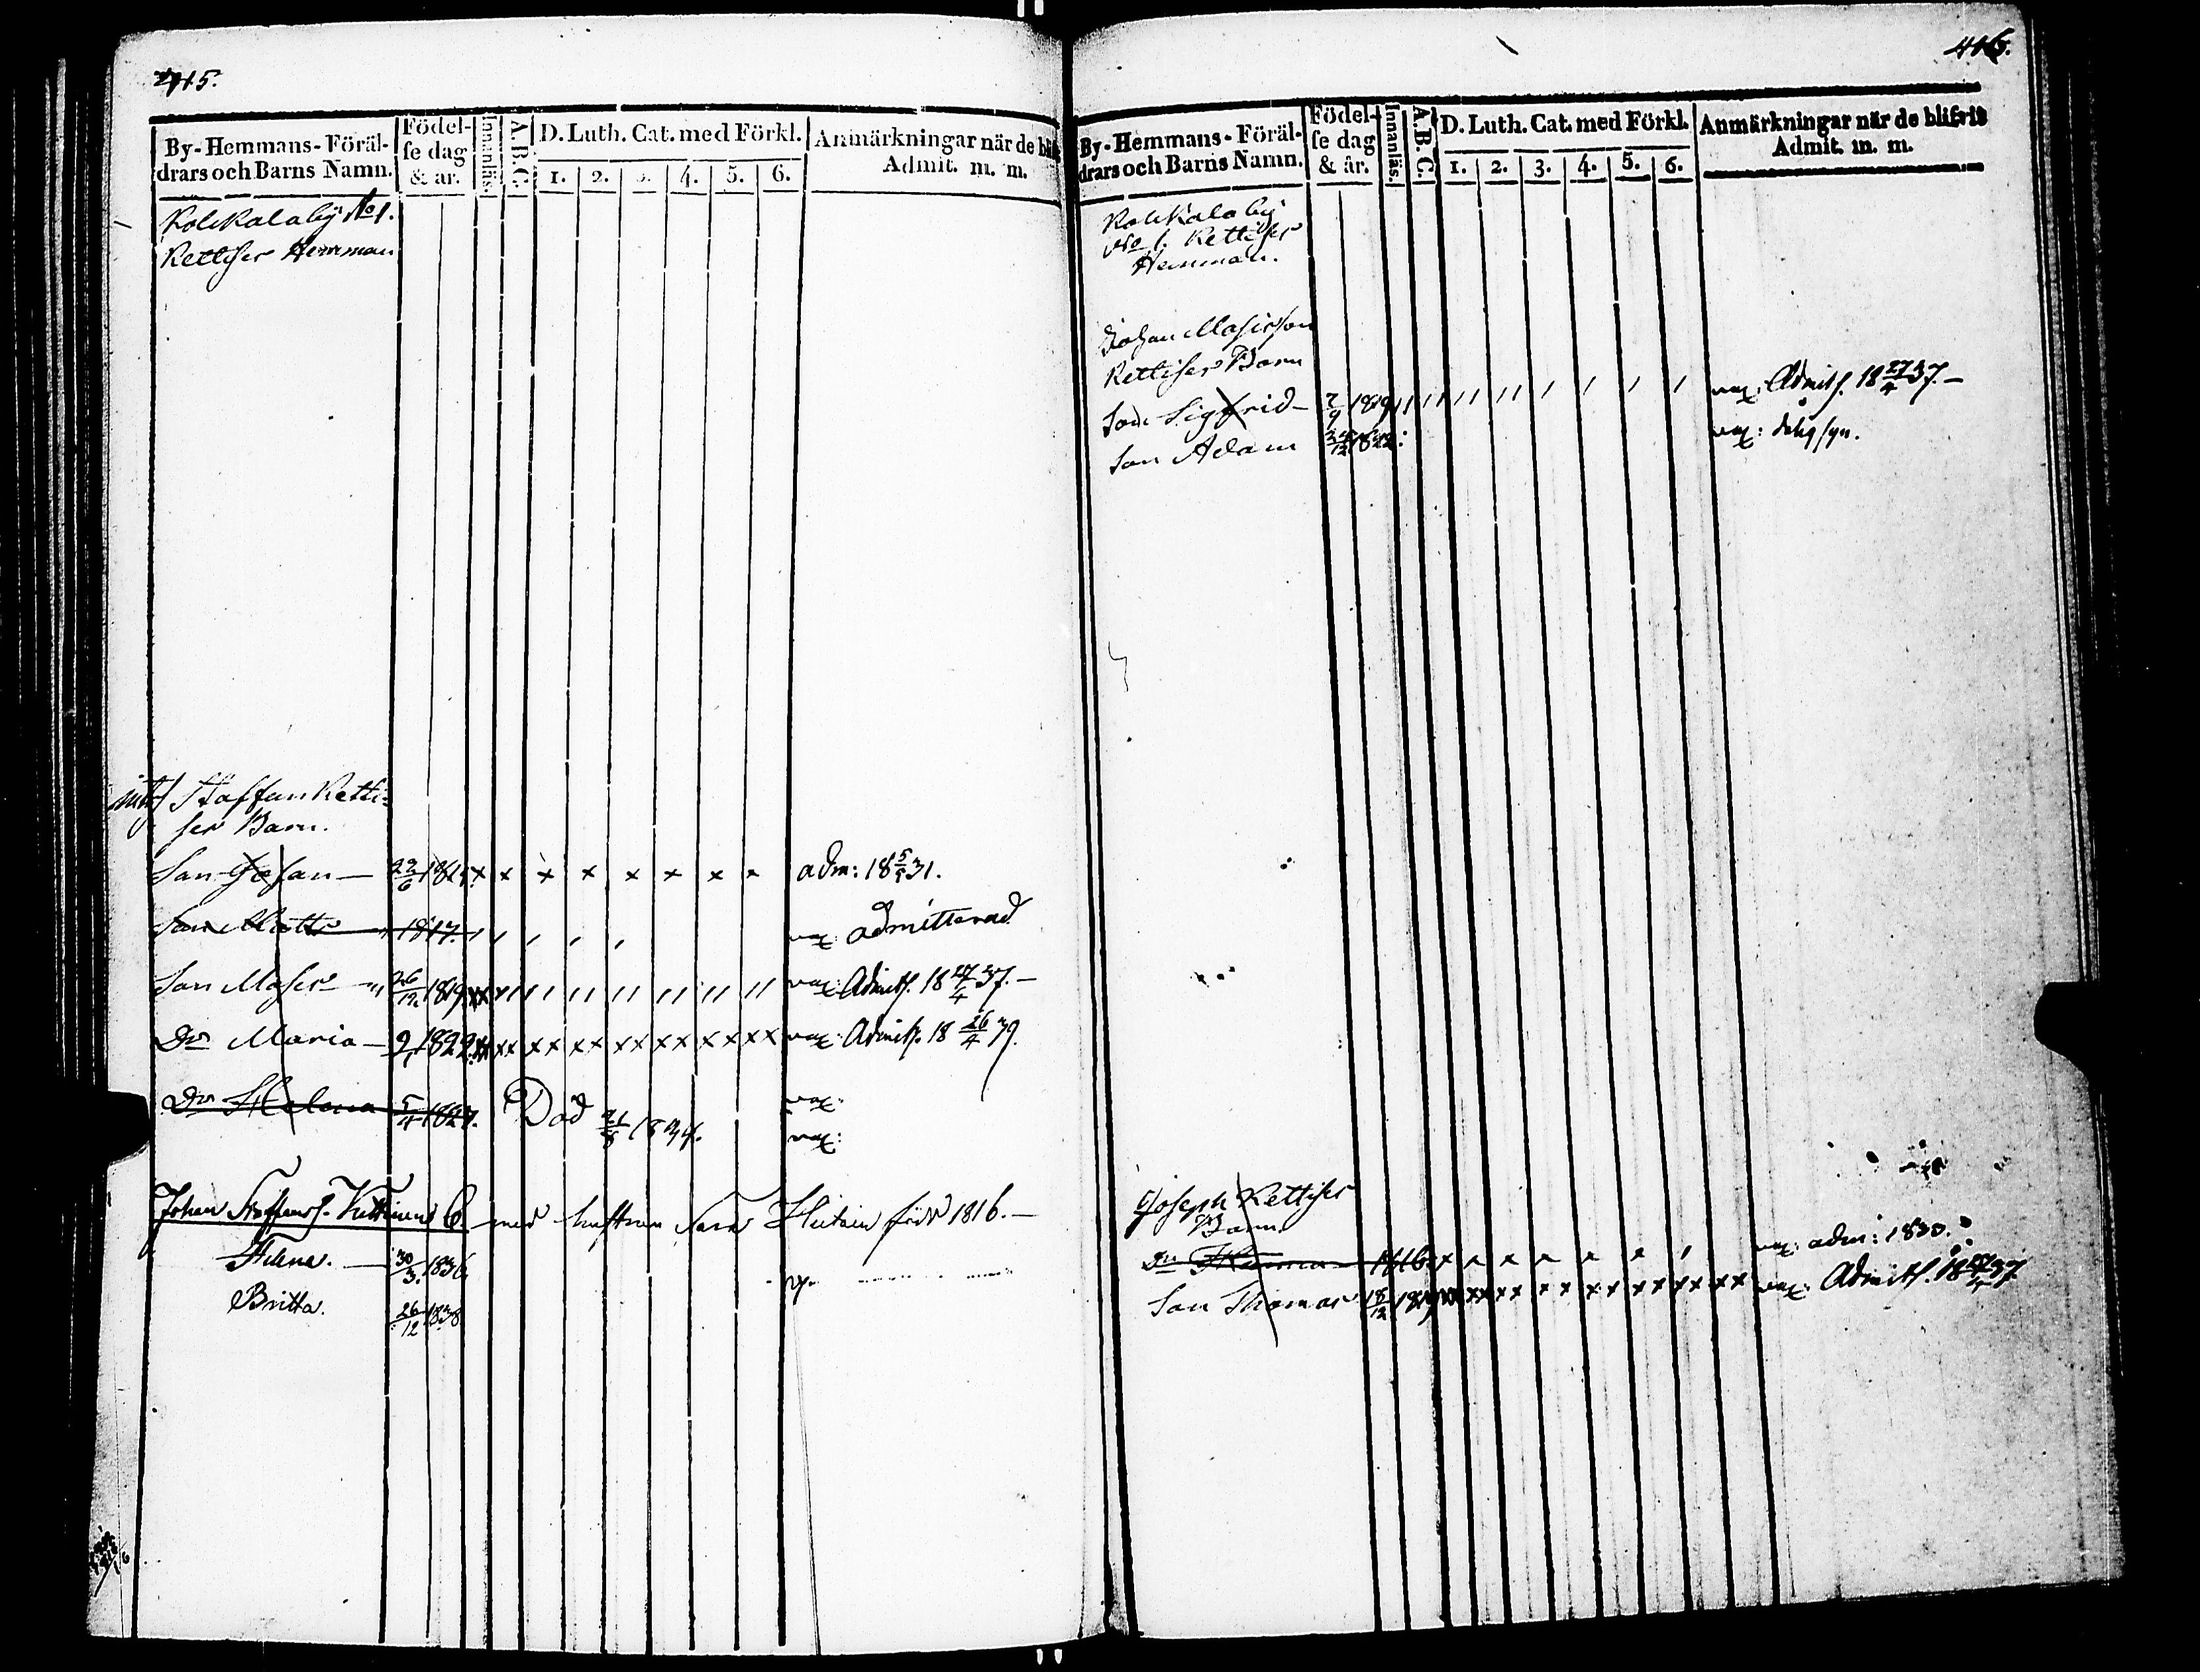 415.
By-Hemmans-Föräl-
drars och Barns Namn.
Födel-
se dag
& år.
Innanläs.
A.B.C.
D. Luth. Cat. med Förkl.
1. 2. 3. 4. 5. 6.
Anmärkningar när de
Admit. m. m.
Kolckala by No 1.
Kettiser Hemman
Staffan Ketti-
ser Barn.
Son Johan — 23/6 181 x x x x x x x x adm: 18 5/5 31.
Son Matts 1817. vax: admitterad
Son Moses 26/12 1819 vax: Admitt. 18 27/4 37. —
Dr Maria — 1822 xx xx xx xx xx xx xx vax: Admitt. 18 26/4 39.
Dr Helena 5/4 1827. Död 21/8 1834. vax:
vax:
Johan Staffanss. Kettinens B. med hustrun Sara född 1816. —
Helena. — 30/3 1836
Britta. 26/12 1838
416.
By-Hemmans-Föräl-
drars och Barns Namn.
Födel-
se dag
& år.
Innanläs.
A.B.C.
D. Luth. Cat. med Förkl.
1. 2. 3. 4. 5. 6.
Anmärkningar när de blifvit
Admit. m. m.
Kolckala by
No 1. Kettiser
Hemman.
Johan Mosisson
Kettiser Barn
Son Sigfrid — 2/9 1819 vax: Admitt. 18 27/4 37. —
Son Adam 1822: vax:
Joseph Kettiser
Barn
Dr 1816 x x x x x x vax: adm: 1830.
Son Thomas 18/12 1819 xx xx xx xx xx xx xx vax: Admitt. 18 27/4 37